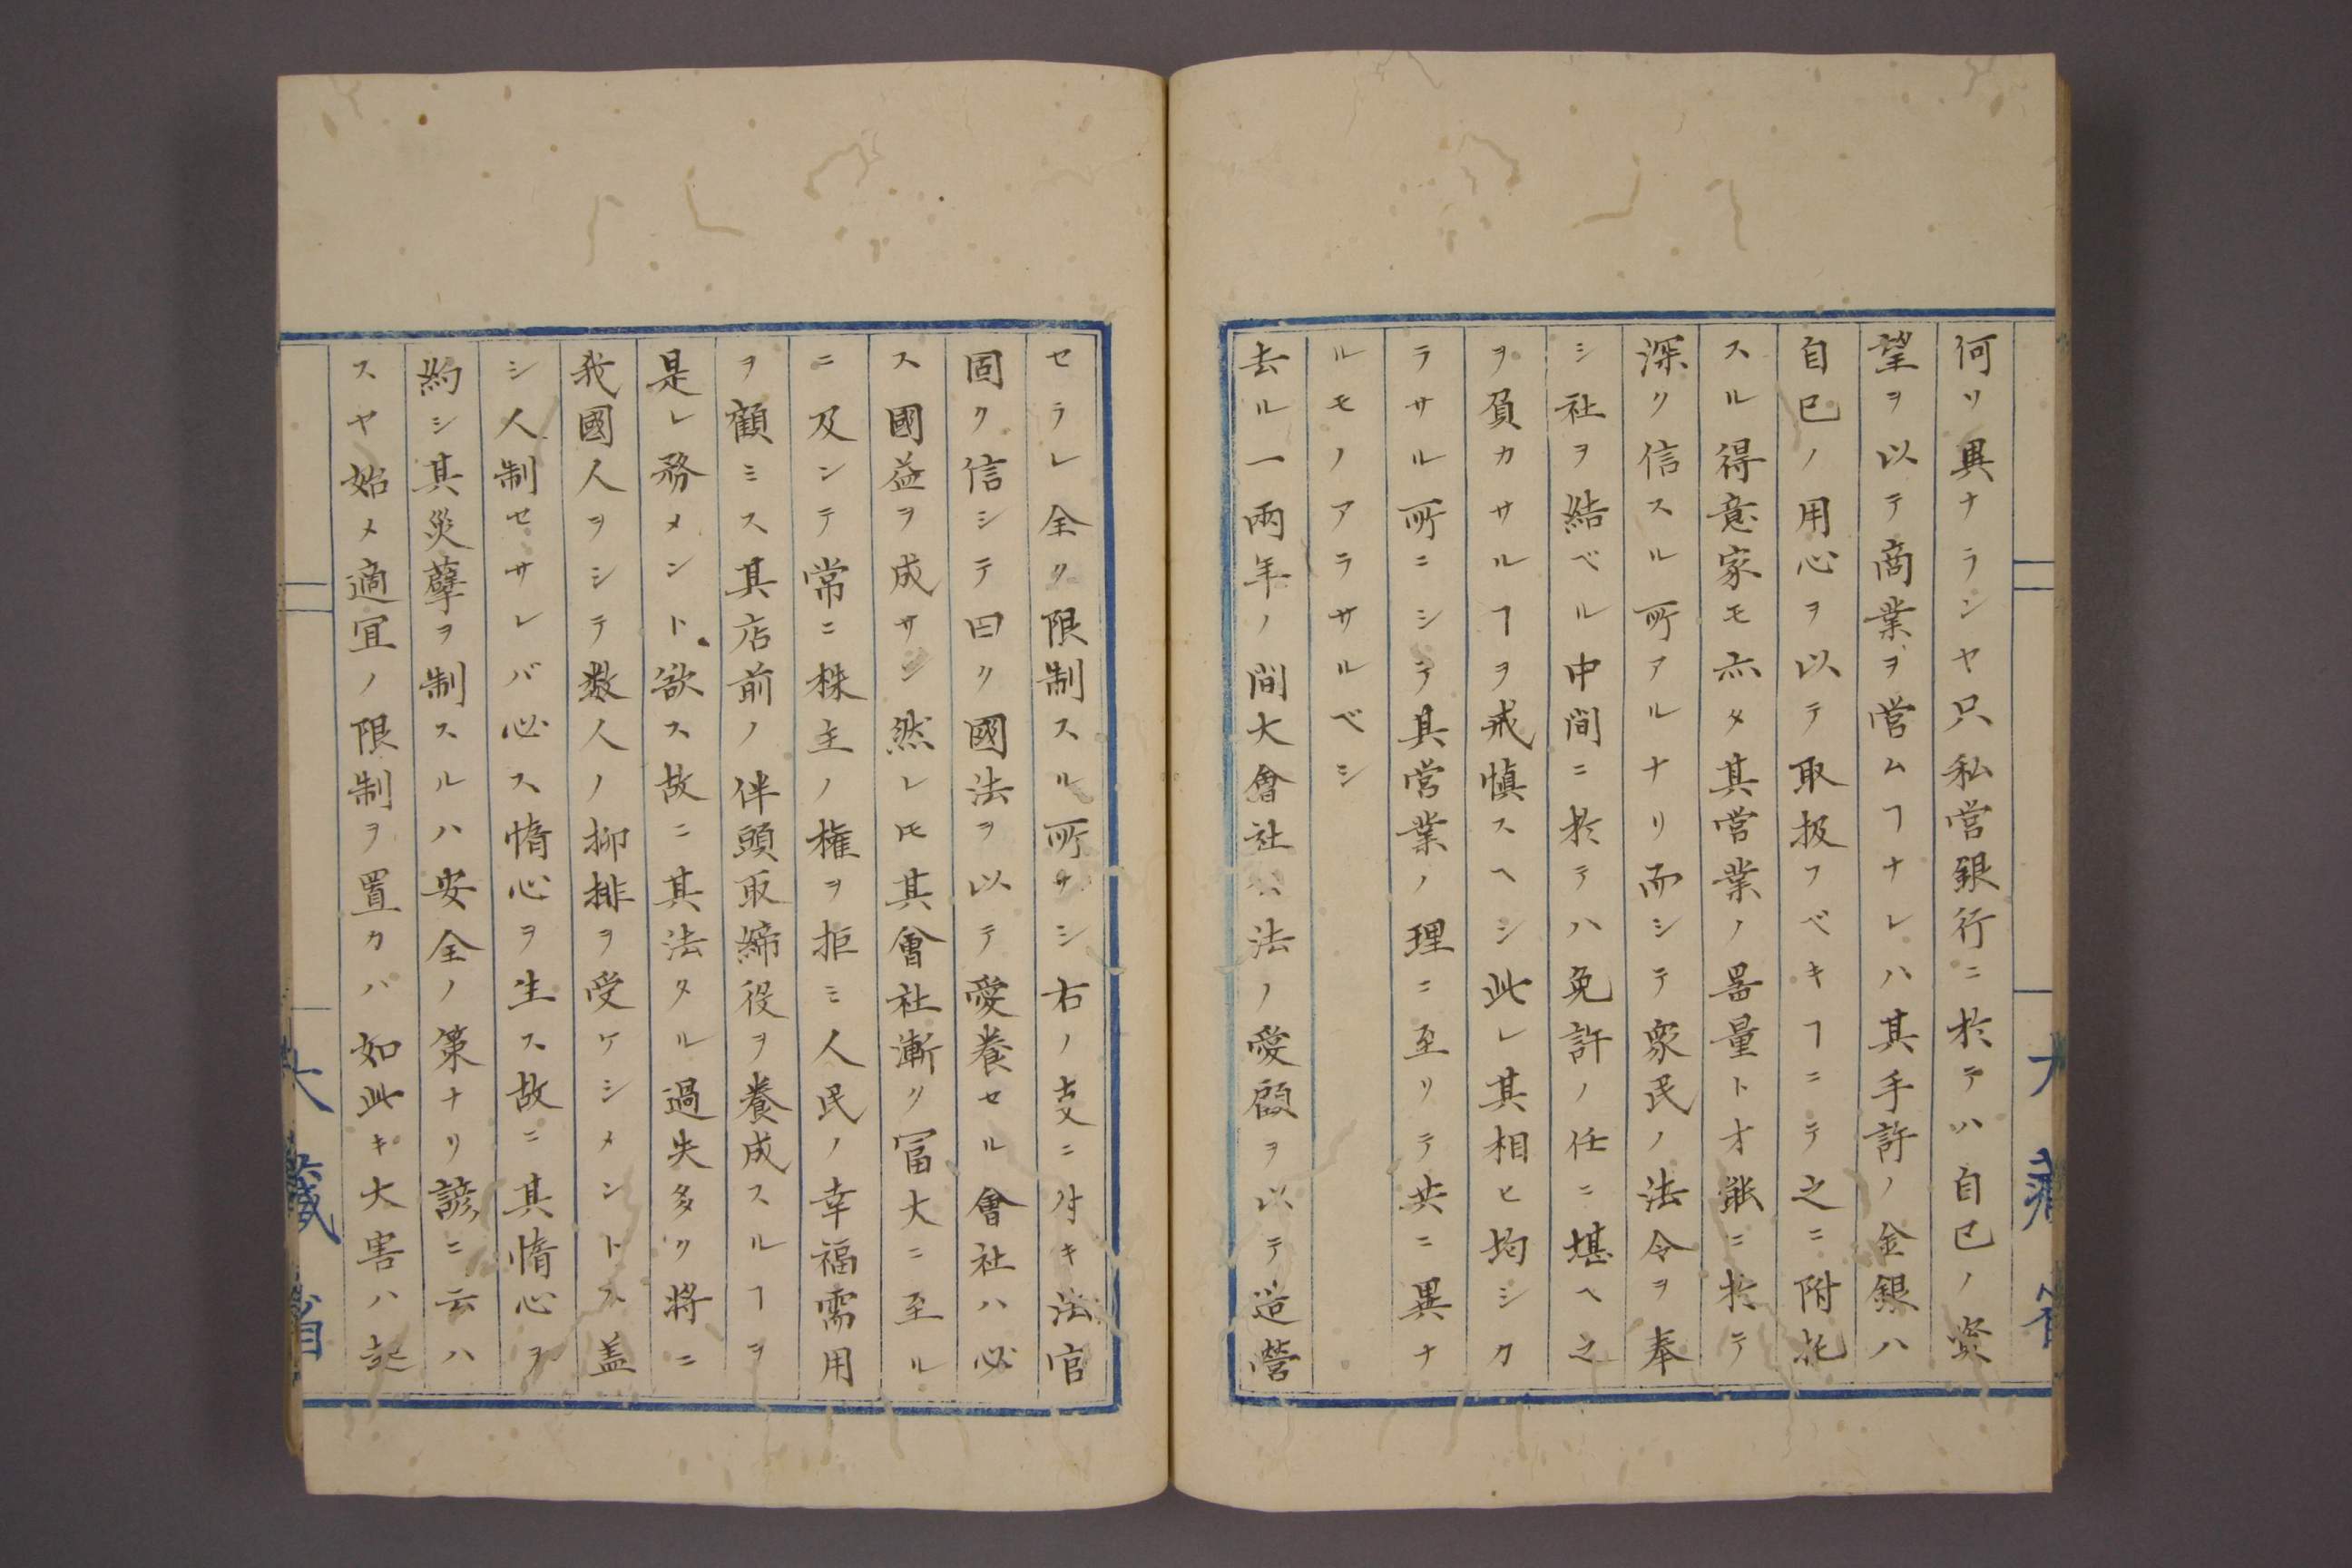 何ソ異ナランヤ只私営銀行ニ於テハ自已ノ資
望ヲ以テ商業ヲ営ムヿナレハ其手許ノ金銀ハ
自已ノ用心ヲ以テ取扱フベキヿニテ之ニ附托
スル得意家モ亦タ其営業ノ噐量ト才能ニ於テ
深ク信スル所アルナリ而シテ衆民ノ法令ヲ奉
シ社ヲ結ベル中間ニ於テハ免許ノ任ニ堪ヘ之
ヲ負カサルヿヲ戒慎スヘシ此レ其相ヒ均シカ
ラサル所ニシテ其営業ノ理ニ至リテ共ニ異ナ
ルモノアラサルベシ
去ル一兩年ノ間大會社ハ法ノ愛顧ヲ以テ造營
セラレ全ク限制スル所ナシ右ノ叓ニ付キ法官
固ク信シテ曰ク國法ヲ以テ愛養セル會社ハ必
ス國益ヲ成サン然レ𪜈其會社漸ク冨大ニ至ル
ニ及ンテ常ニ株主ノ権ヲ拒ミ人民ノ幸福需用
ヲ顧ミス其店前ノ伴頭取締役ヲ養成スルヿヲ
是レ務メント欲ス故ニ其法タル過失多ク将ニ
我國人ヲシテ数人ノ抑排ヲ受ケシメントス盖
シ人制セサレバ必ス惰心ヲ生ス故ニ其惰心ヲ
約シ其災孽ヲ制スルハ安全ノ策ナリ諺ニ云ハ
スヤ始メ適宜ノ限制ヲ置カバ如此キ大害ハ起
大藏省
大藏省